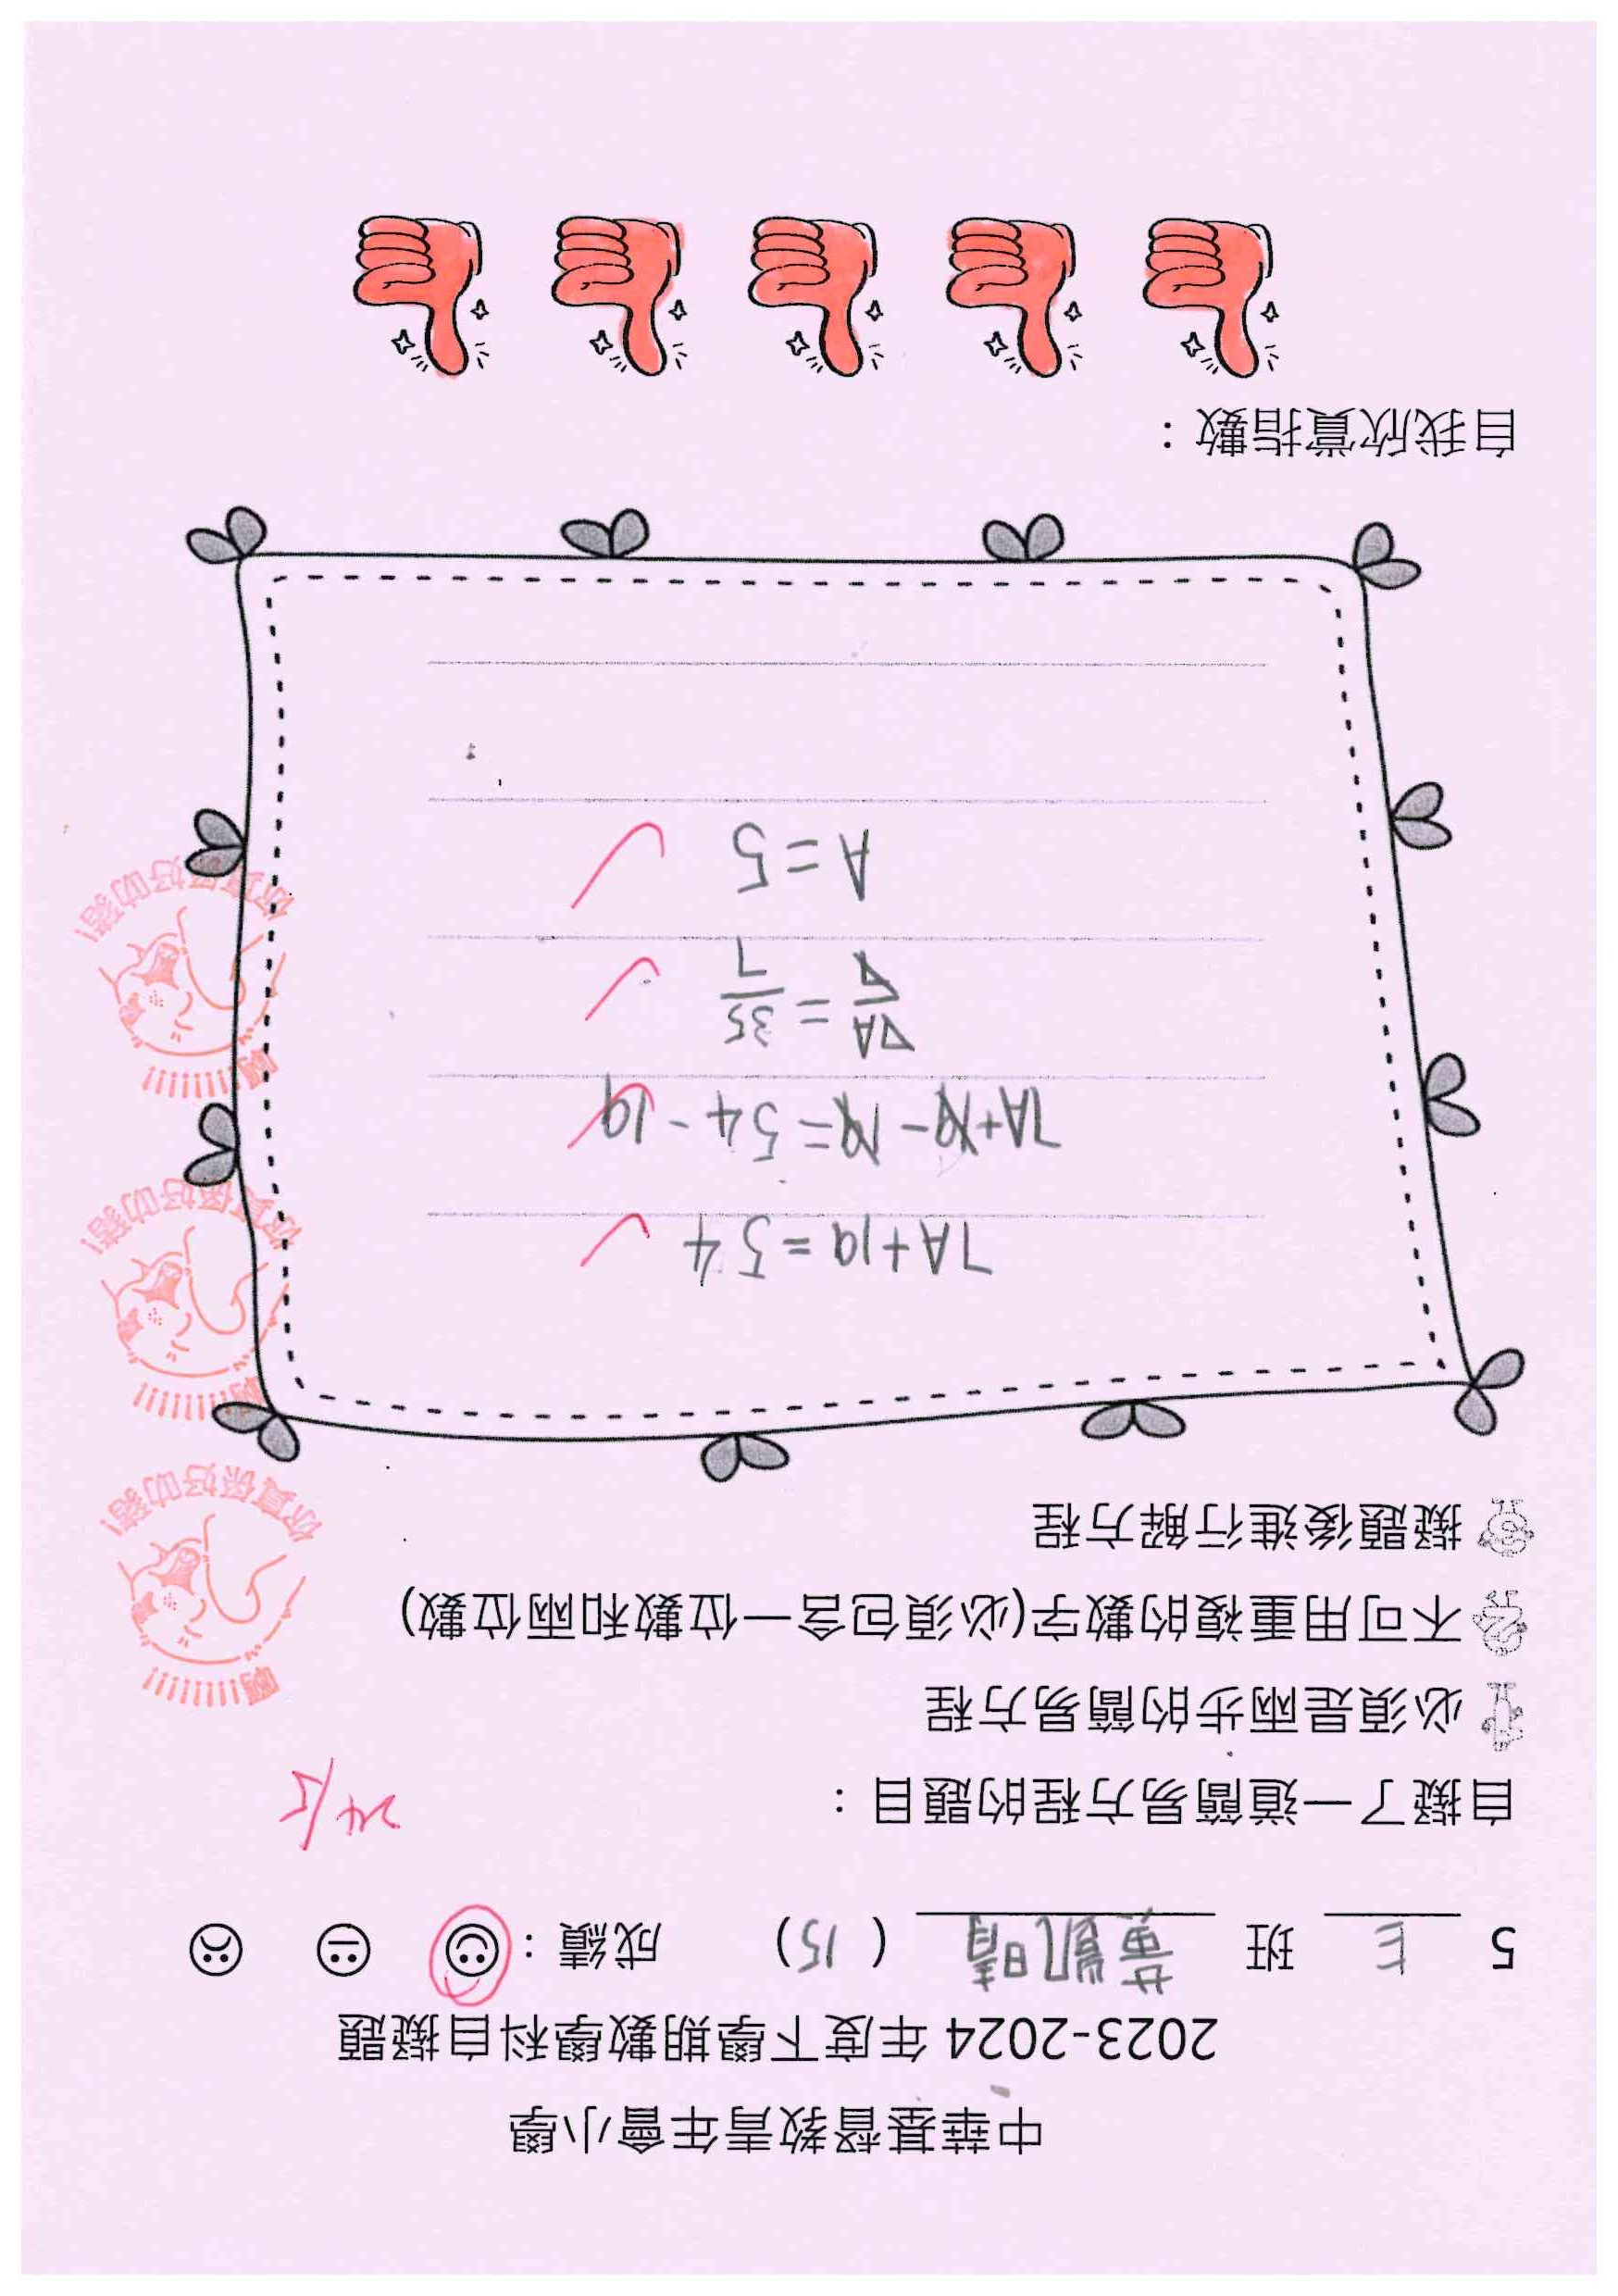 中華基督教青年會小學
2023-2024 年度下學期數學科自擬題
5 E 班 黃凱晴 ( 15 ) 成績：
自擬了一道簡易方程的題目：
24/5
必須是兩步的簡易方程
不可用重複的數字(必須包含一位數和兩位數)
擬題後進行解方程
啊!!!!!!!!
你真係好叻豬!
7A+19=54
啊!!!!!!!!
你真係好叻豬!
7A+19-19=54-19
7A/7=35/7
啊!!!!!!!!
你真係好叻豬!
A=5
自我欣賞指數：